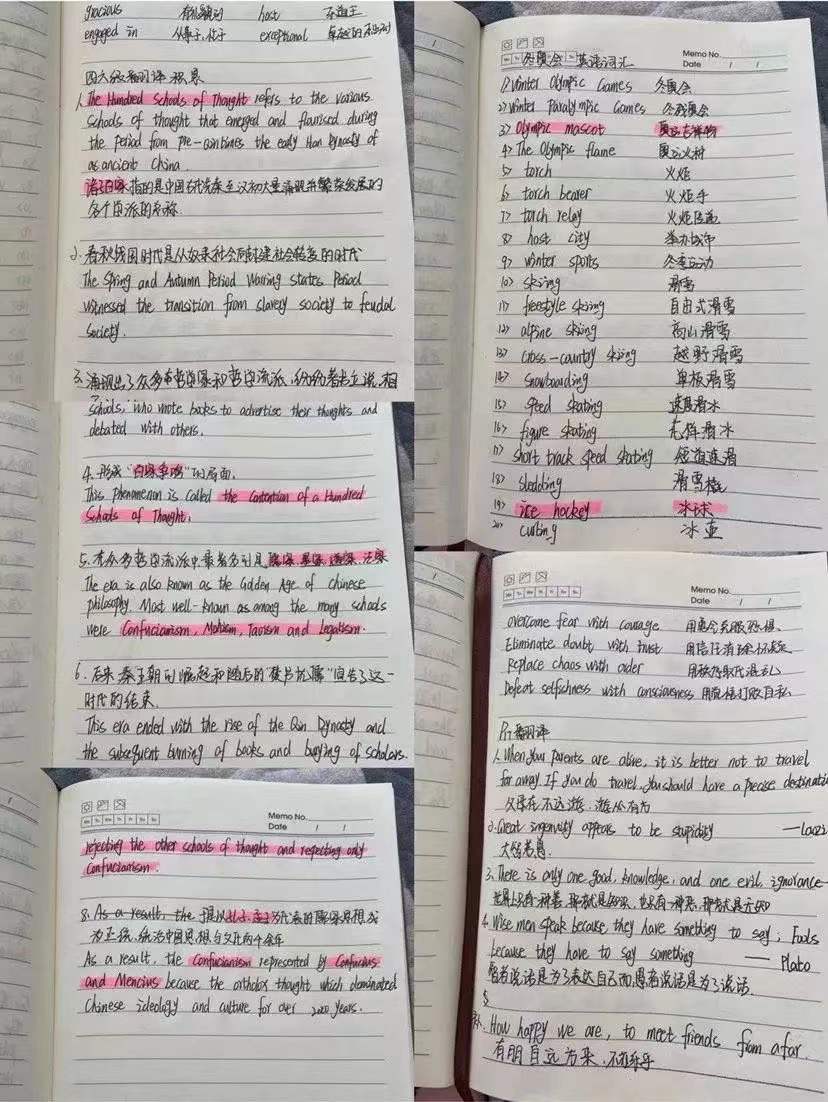 gracious
host
engaged in
exceptional
四六级翻译 积累
1. The Hundred Schools of Thought refers to the various
schools of thought that emerged and flourised during
the period from pre-qin times the early Han Dynasty of
as ancient China.
诸子百家指的是中国古代先秦至汉初大量涌现并繁荣发展的
各个学派的名称
2. 春秋战国时代是从奴隶社会向封建社会转变的时代
The Spring and Autumn Period Warring states Period
witnessed the transition from slavery society to feudal
society.
3. 涌现出了众多哲学家和哲学流派,纷纷著书立说,相
schools, who wrote books to advertise their thoughts and
debated with others.
4. 形成“百家争鸣”的局面.
This phenomenon is called the contention of a Hundred
Schools of Thought.
5. 在众多哲学流派中最著名的是儒家、墨家、道家、法家
The era is also known as the Golden Age of Chinese
philosophy. Most well-known as among the many schools
were Confucianism, Mohism, Taoism and Legalism.
6. 后来秦王朝的崛起和随后的“焚书坑儒”宣告了这一
时代的结束.
This era ended with the rise of the Qin Dynasty and
the subsequent burning of books and burying of scholars.
Memo No.
Date / /
Mo Tu We Th Fr Sa Su
rejecting the other schools of thought and respecting only
Confucianism.
8. As a result, the 于是以孔子、孟子为代表的儒家思想成
为正统,统治中国思想与文化两千余年
As a result, the Confucianism represented by Confucius
and Mencius because the orthodox thought which dominated
Chinese ideology and culture for over 2000 years.
Memo No.
Date / /
冬奥会 英语词汇
1> Winter Olympic Games 冬奥会
2> Winter Paralympic Games 冬残奥会
3> Olympic mascot 奥运吉祥物
4> The Olympic flame 奥运火种
5> torch 火炬
6> torch bearer 火炬手
7> torch relay 火炬传递
8> host city 举办城市
9> winter sports 冬季运动
10> skiing 滑雪
11> freestyle skiing 自由式滑雪
12> alpine skiing 高山滑雪
13> cross-country skiing 越野滑雪
14> snowboarding 单板滑雪
15> speed skating 速度滑冰
16> figure skating 花样滑冰
17> short track speed skating 短道速滑
18> sledding 滑雪橇
19> ice hockey 冰球
20> curling 冰壶
Memo No.
Date / /
Mo Tu We Th Fr Sa Su
overcome fear with courage 用勇气克服恐惧.
Eliminate doubt with trust 用信任消除怀疑
Replace chaos with order 用秩序取代混乱
Defeat selfishness with consciousness
翻译
1. When you parents are alive, it is better not to travel
far away. If you do travel, you should have a precise destinati
父母在不远游,游必有方
2. Great ingenuity appears to be stupidity —Laozi
大智若愚.
3. There is only one good, knowledge, and one evil, ignorance
世界上只有一种善,那就是知识,也只有一种恶,那就是无知
4. Wise men speak because they have something to say; Fools
because they have to say something —— Plato
智者说话是为了表达自己而愚者说话是为了说话.
5
How happy we are, to meet friends from afar.
有朋自远方来,不亦乐乎